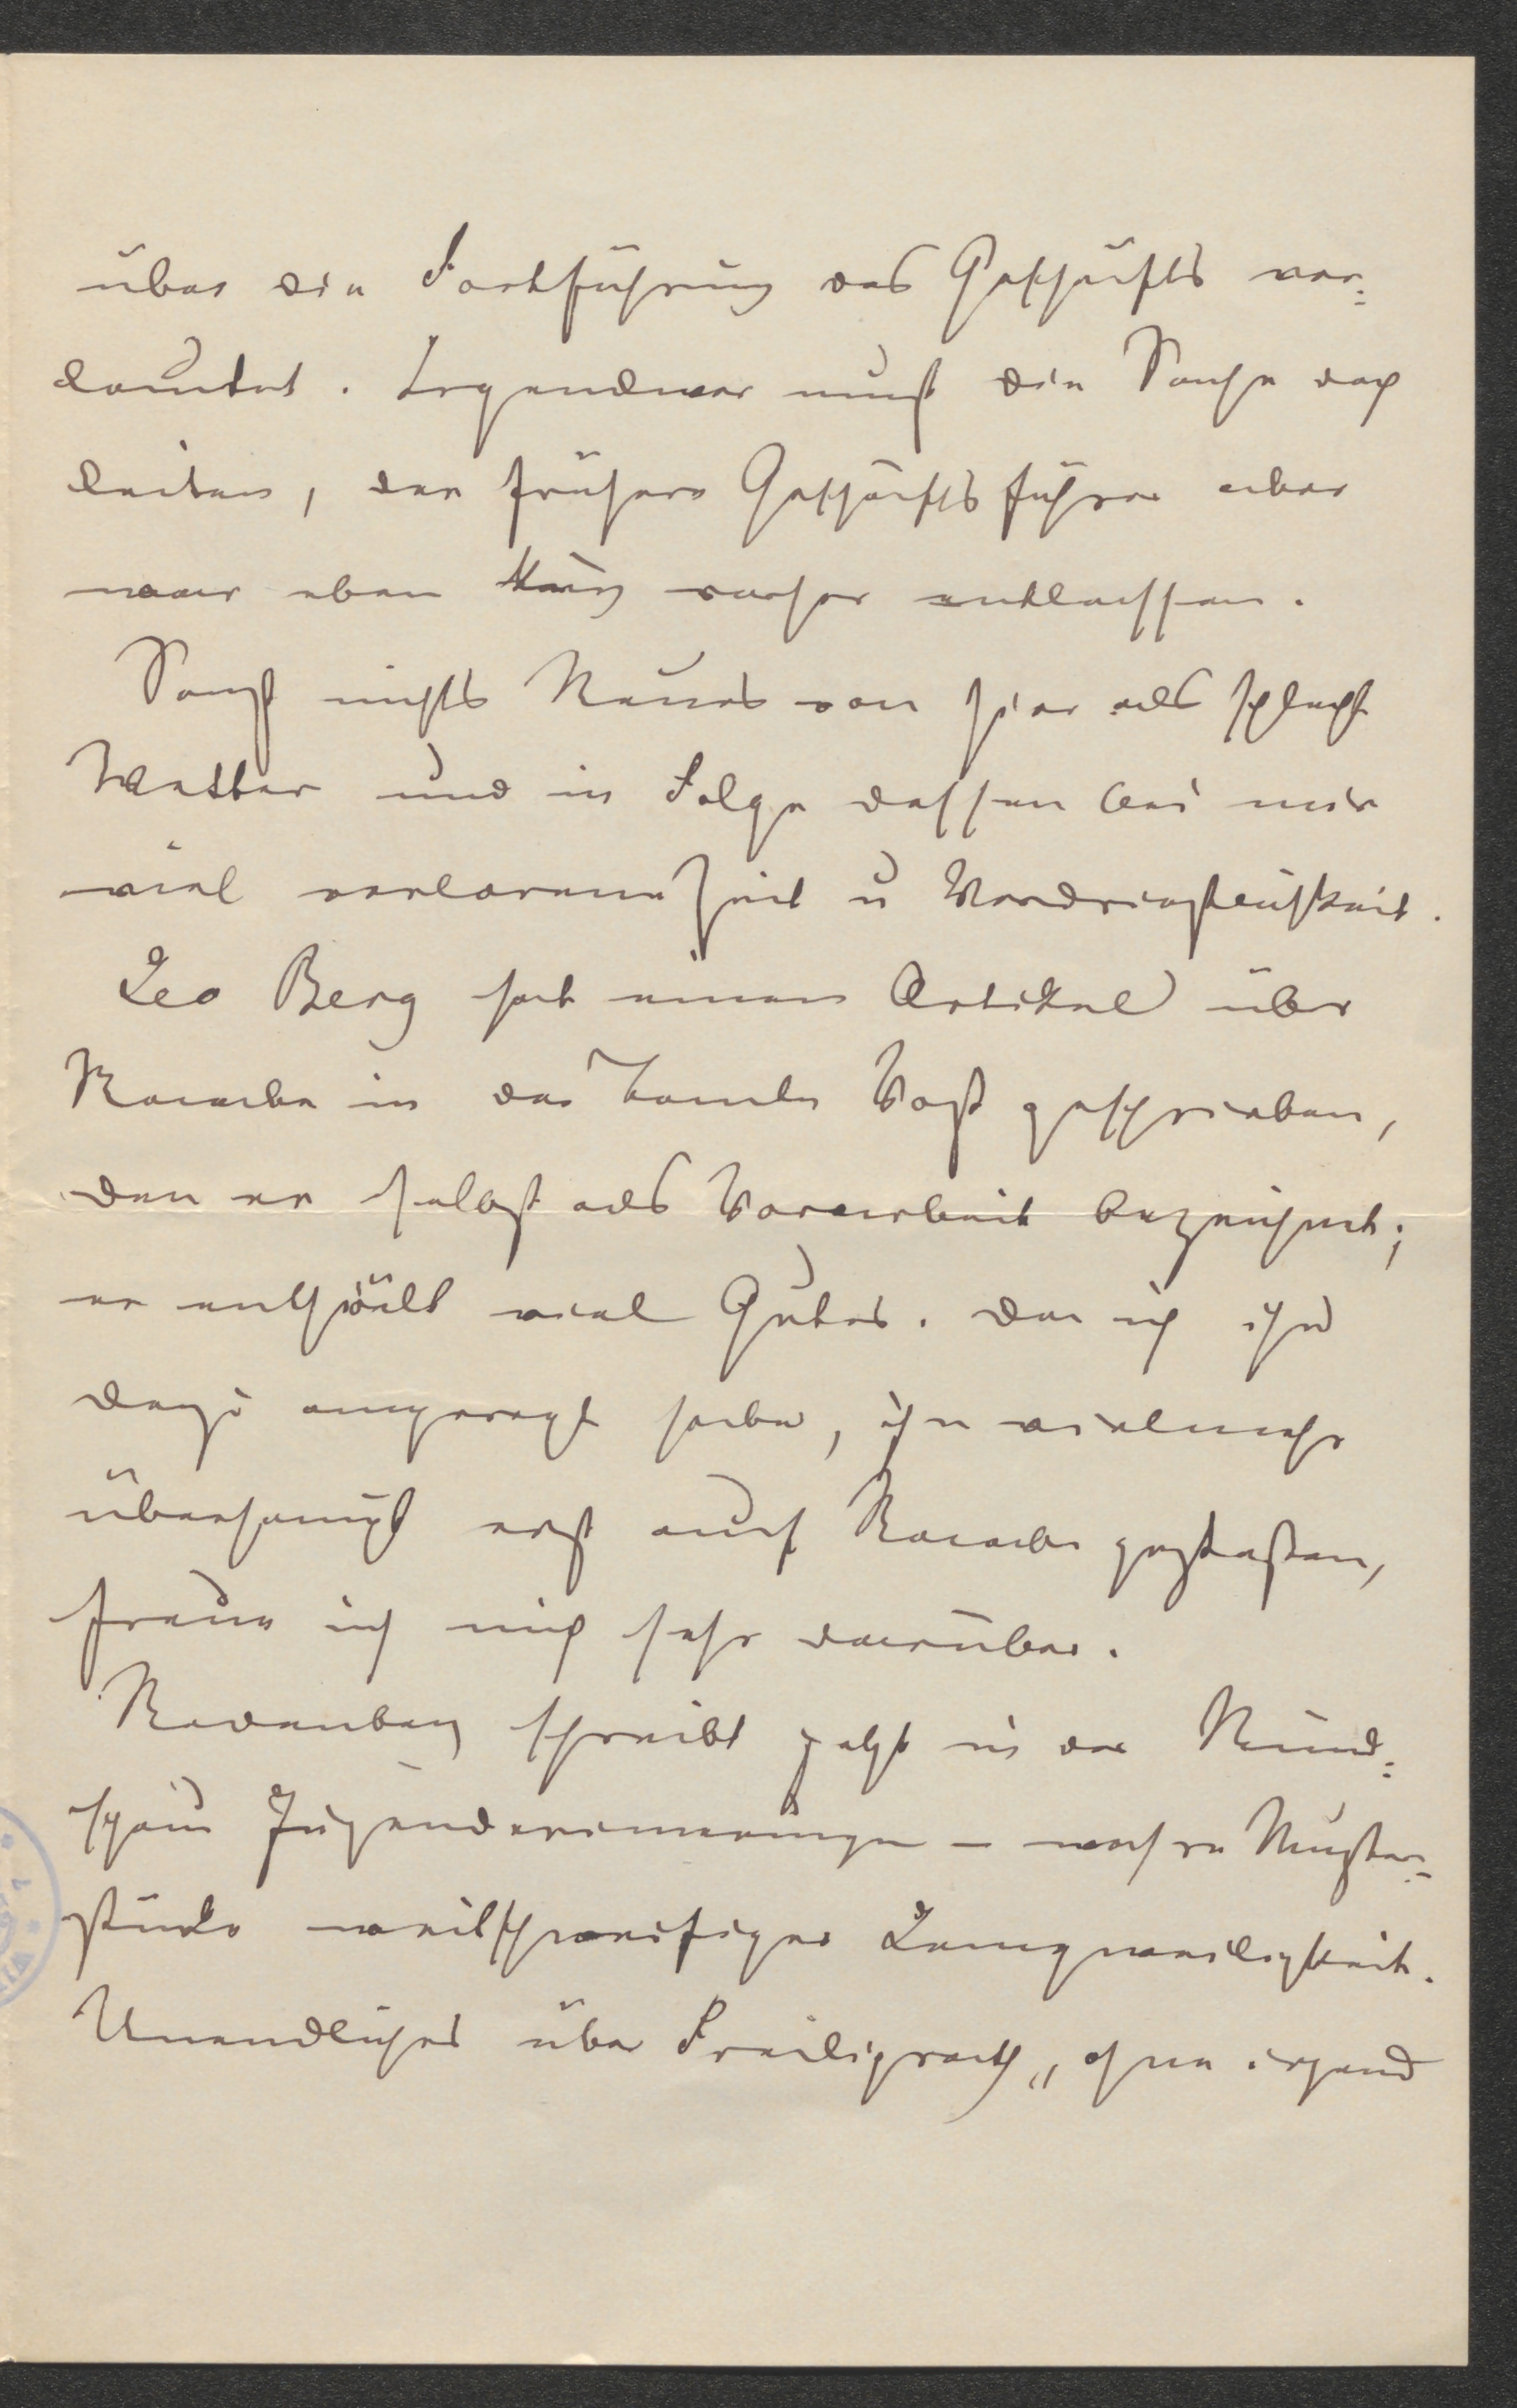 über die Fortführung des Geschäfts ver=
lautet. Irgendwer muß die Sache doch
leiten, der frühere Geschäftsführer aber
war eben kurz vorher entlassen.
Sonst nichts Neues von hier als schlecht
Wetter und in Folge dessen bei mir
viel verlorene Zeit u Verdrießlichkeit.
Leo Berg hat einen Artikel über
Raabe in der Tante Voß geschrieben,
den er selbst als Vorarbeit bezeichnet;
er enthält viel Gutes. Da ich ihn
dazu angeregt habe, ihn vielmehr
überhaupt erst auf Raabe gestoßen,
freue ich mich sehr darüber.
Rodenberg schreibt jetzt in der Rund=
schau Jugenderinnerungen – wahre Muster=
stücke weitschweifiger Langweiligkeit.
Unendliches über Freiligrath, ohne irgend